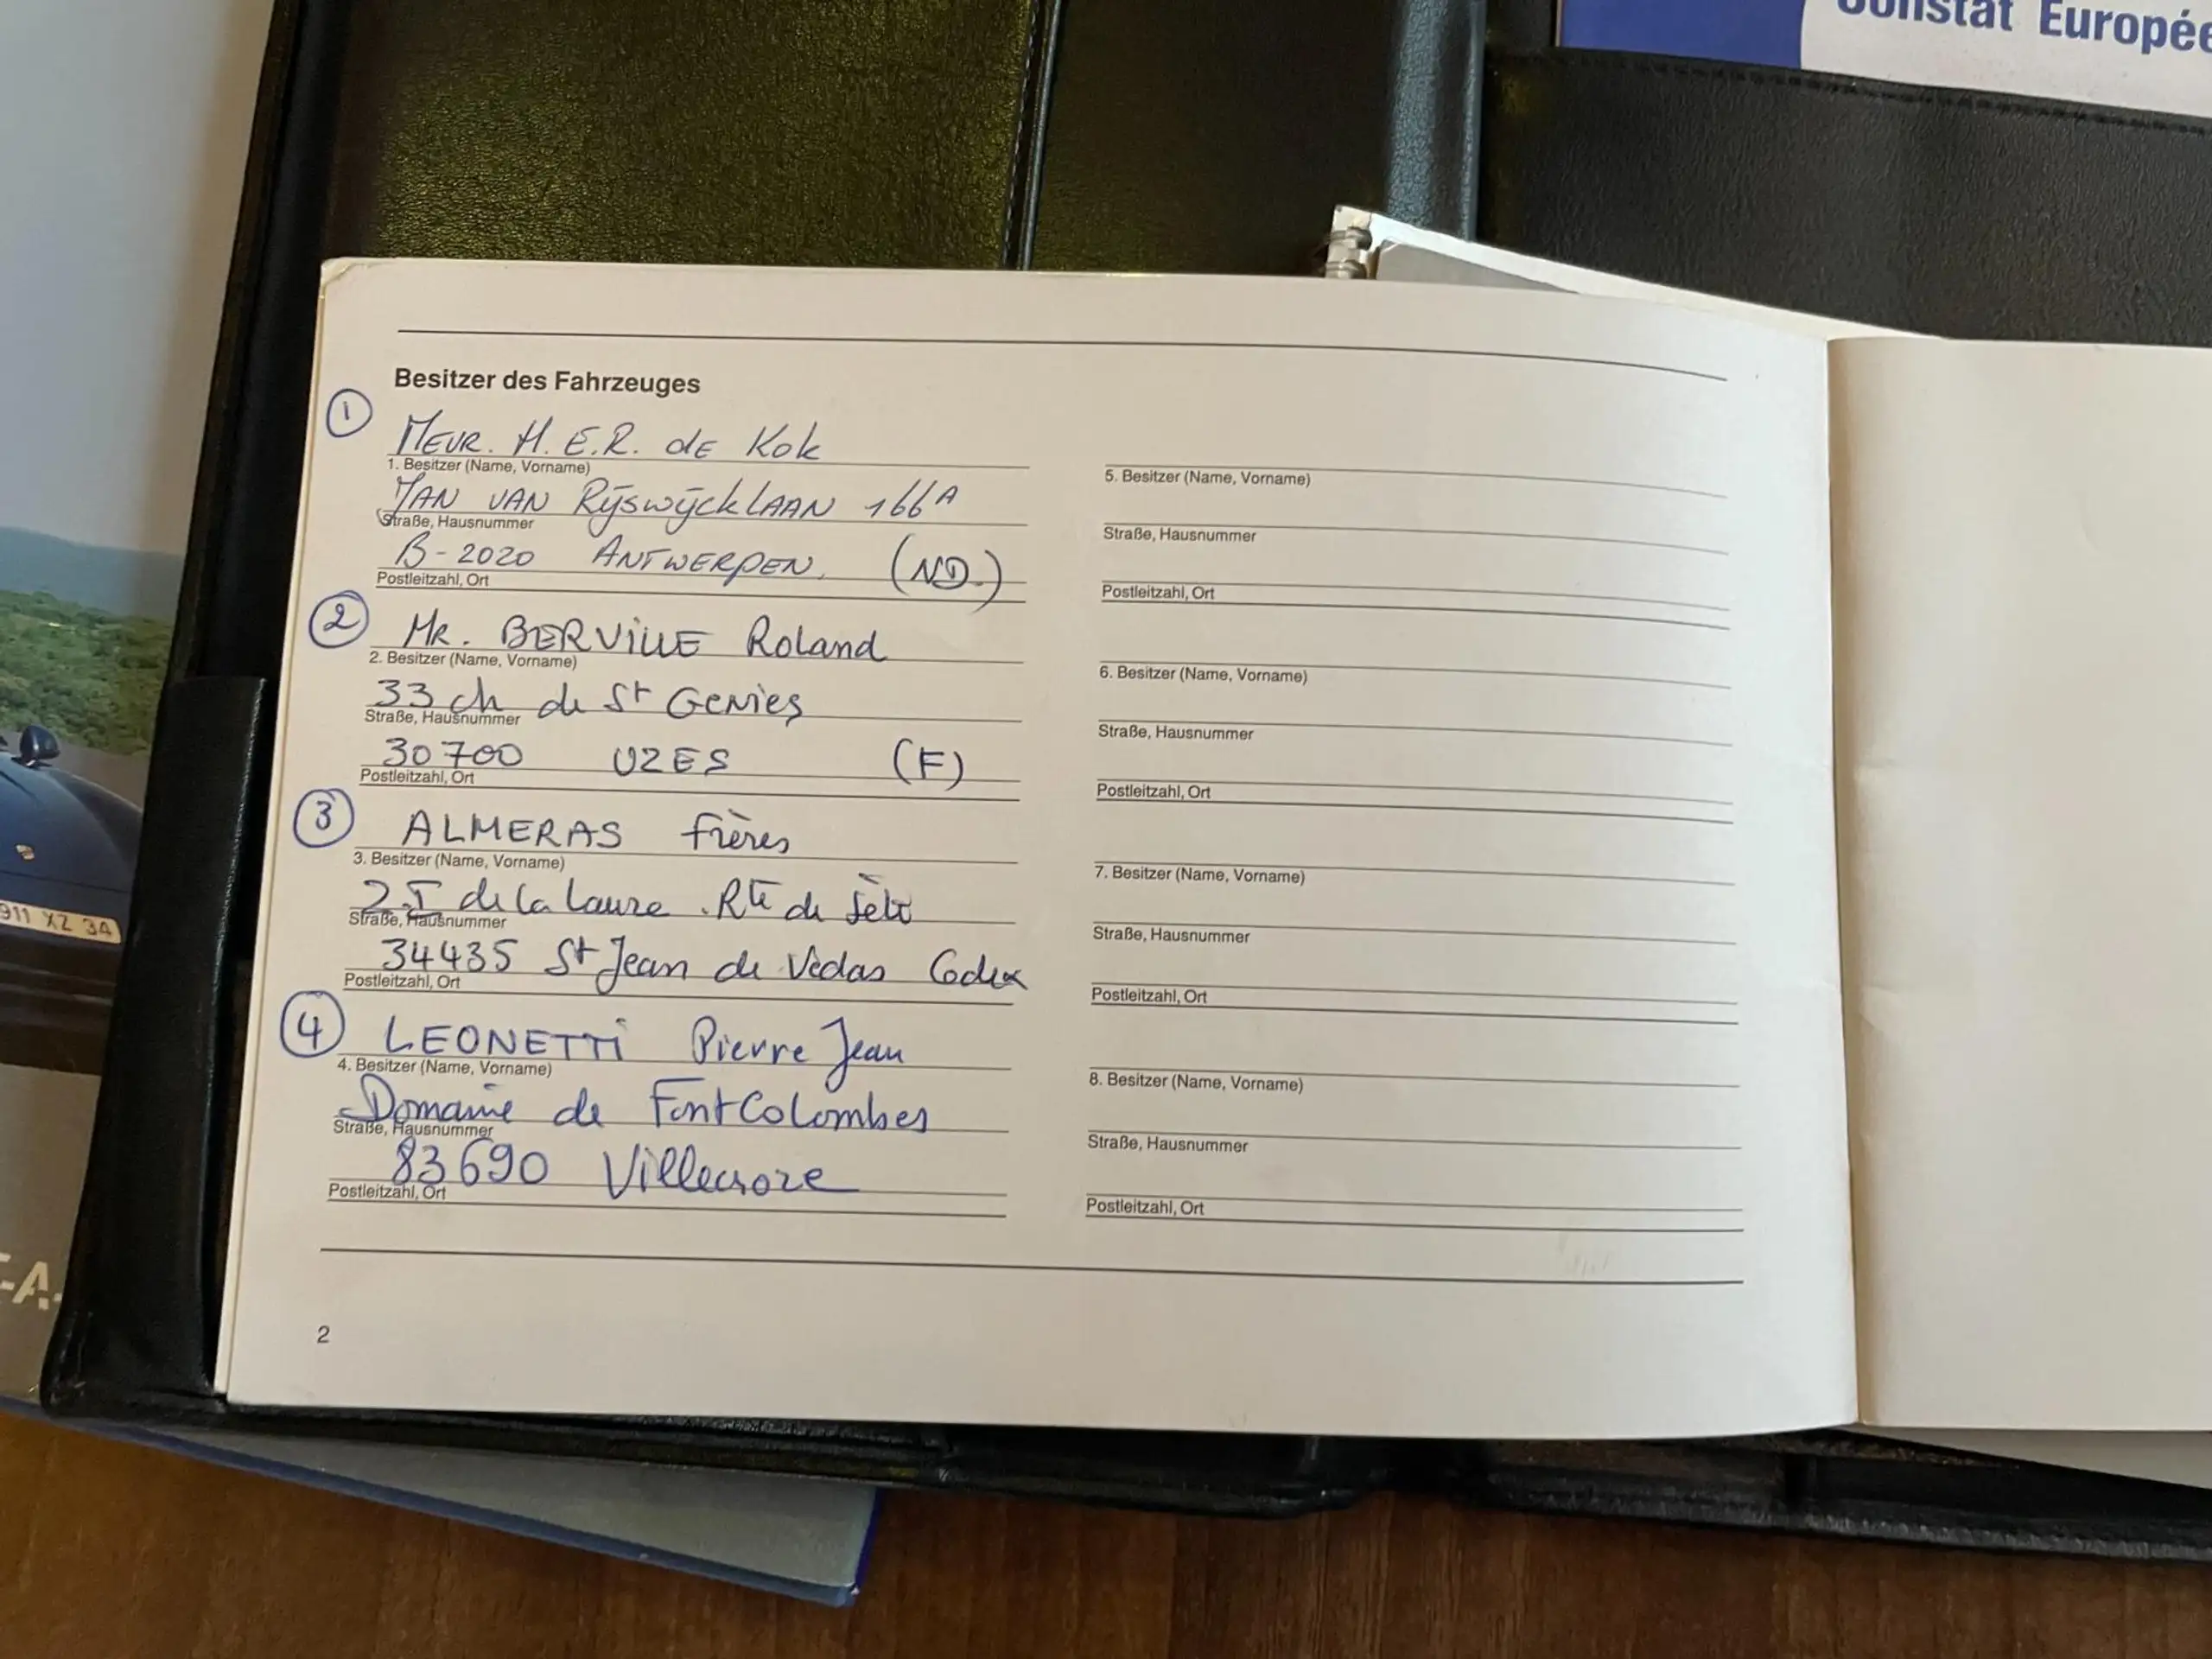 Constat Europée
Besitzer des Fahrzeuges
1
MEVR. H.E.R. de Kok
1. Besitzer (Name, Vorname)
JAN VAN RijswijckLAAN 166A
Straße, Hausnummer
B-2020 ANTWERPEN. (ND.)
Postleitzahl, Ort
2
MR. BERVILLE Roland
2. Besitzer (Name, Vorname)
33 ch de St Genies
Straße, Hausnummer
30700 UZES (F)
Postleitzahl, Ort
3
ALMERAS frères
3. Besitzer (Name, Vorname)
Z.I de la Lauze . Rte de Sète
Straße, Hausnummer
34435 St Jean de Vedas Cedex
Postleitzahl, Ort
4
LEONETTI Pierre Jean
4. Besitzer (Name, Vorname)
Domaine de FontColombes
Straße, Hausnummer
83690 Villecroze
Postleitzahl, Ort
5. Besitzer (Name, Vorname)
Straße, Hausnummer
Postleitzahl, Ort
6. Besitzer (Name, Vorname)
Straße, Hausnummer
Postleitzahl, Ort
7. Besitzer (Name, Vorname)
Straße, Hausnummer
Postleitzahl, Ort
8. Besitzer (Name, Vorname)
Straße, Hausnummer
Postleitzahl, Ort
2
911 XZ 34
-A-